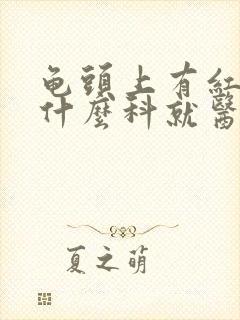 龟頭上有紅
什麼科就醫
夏之萌